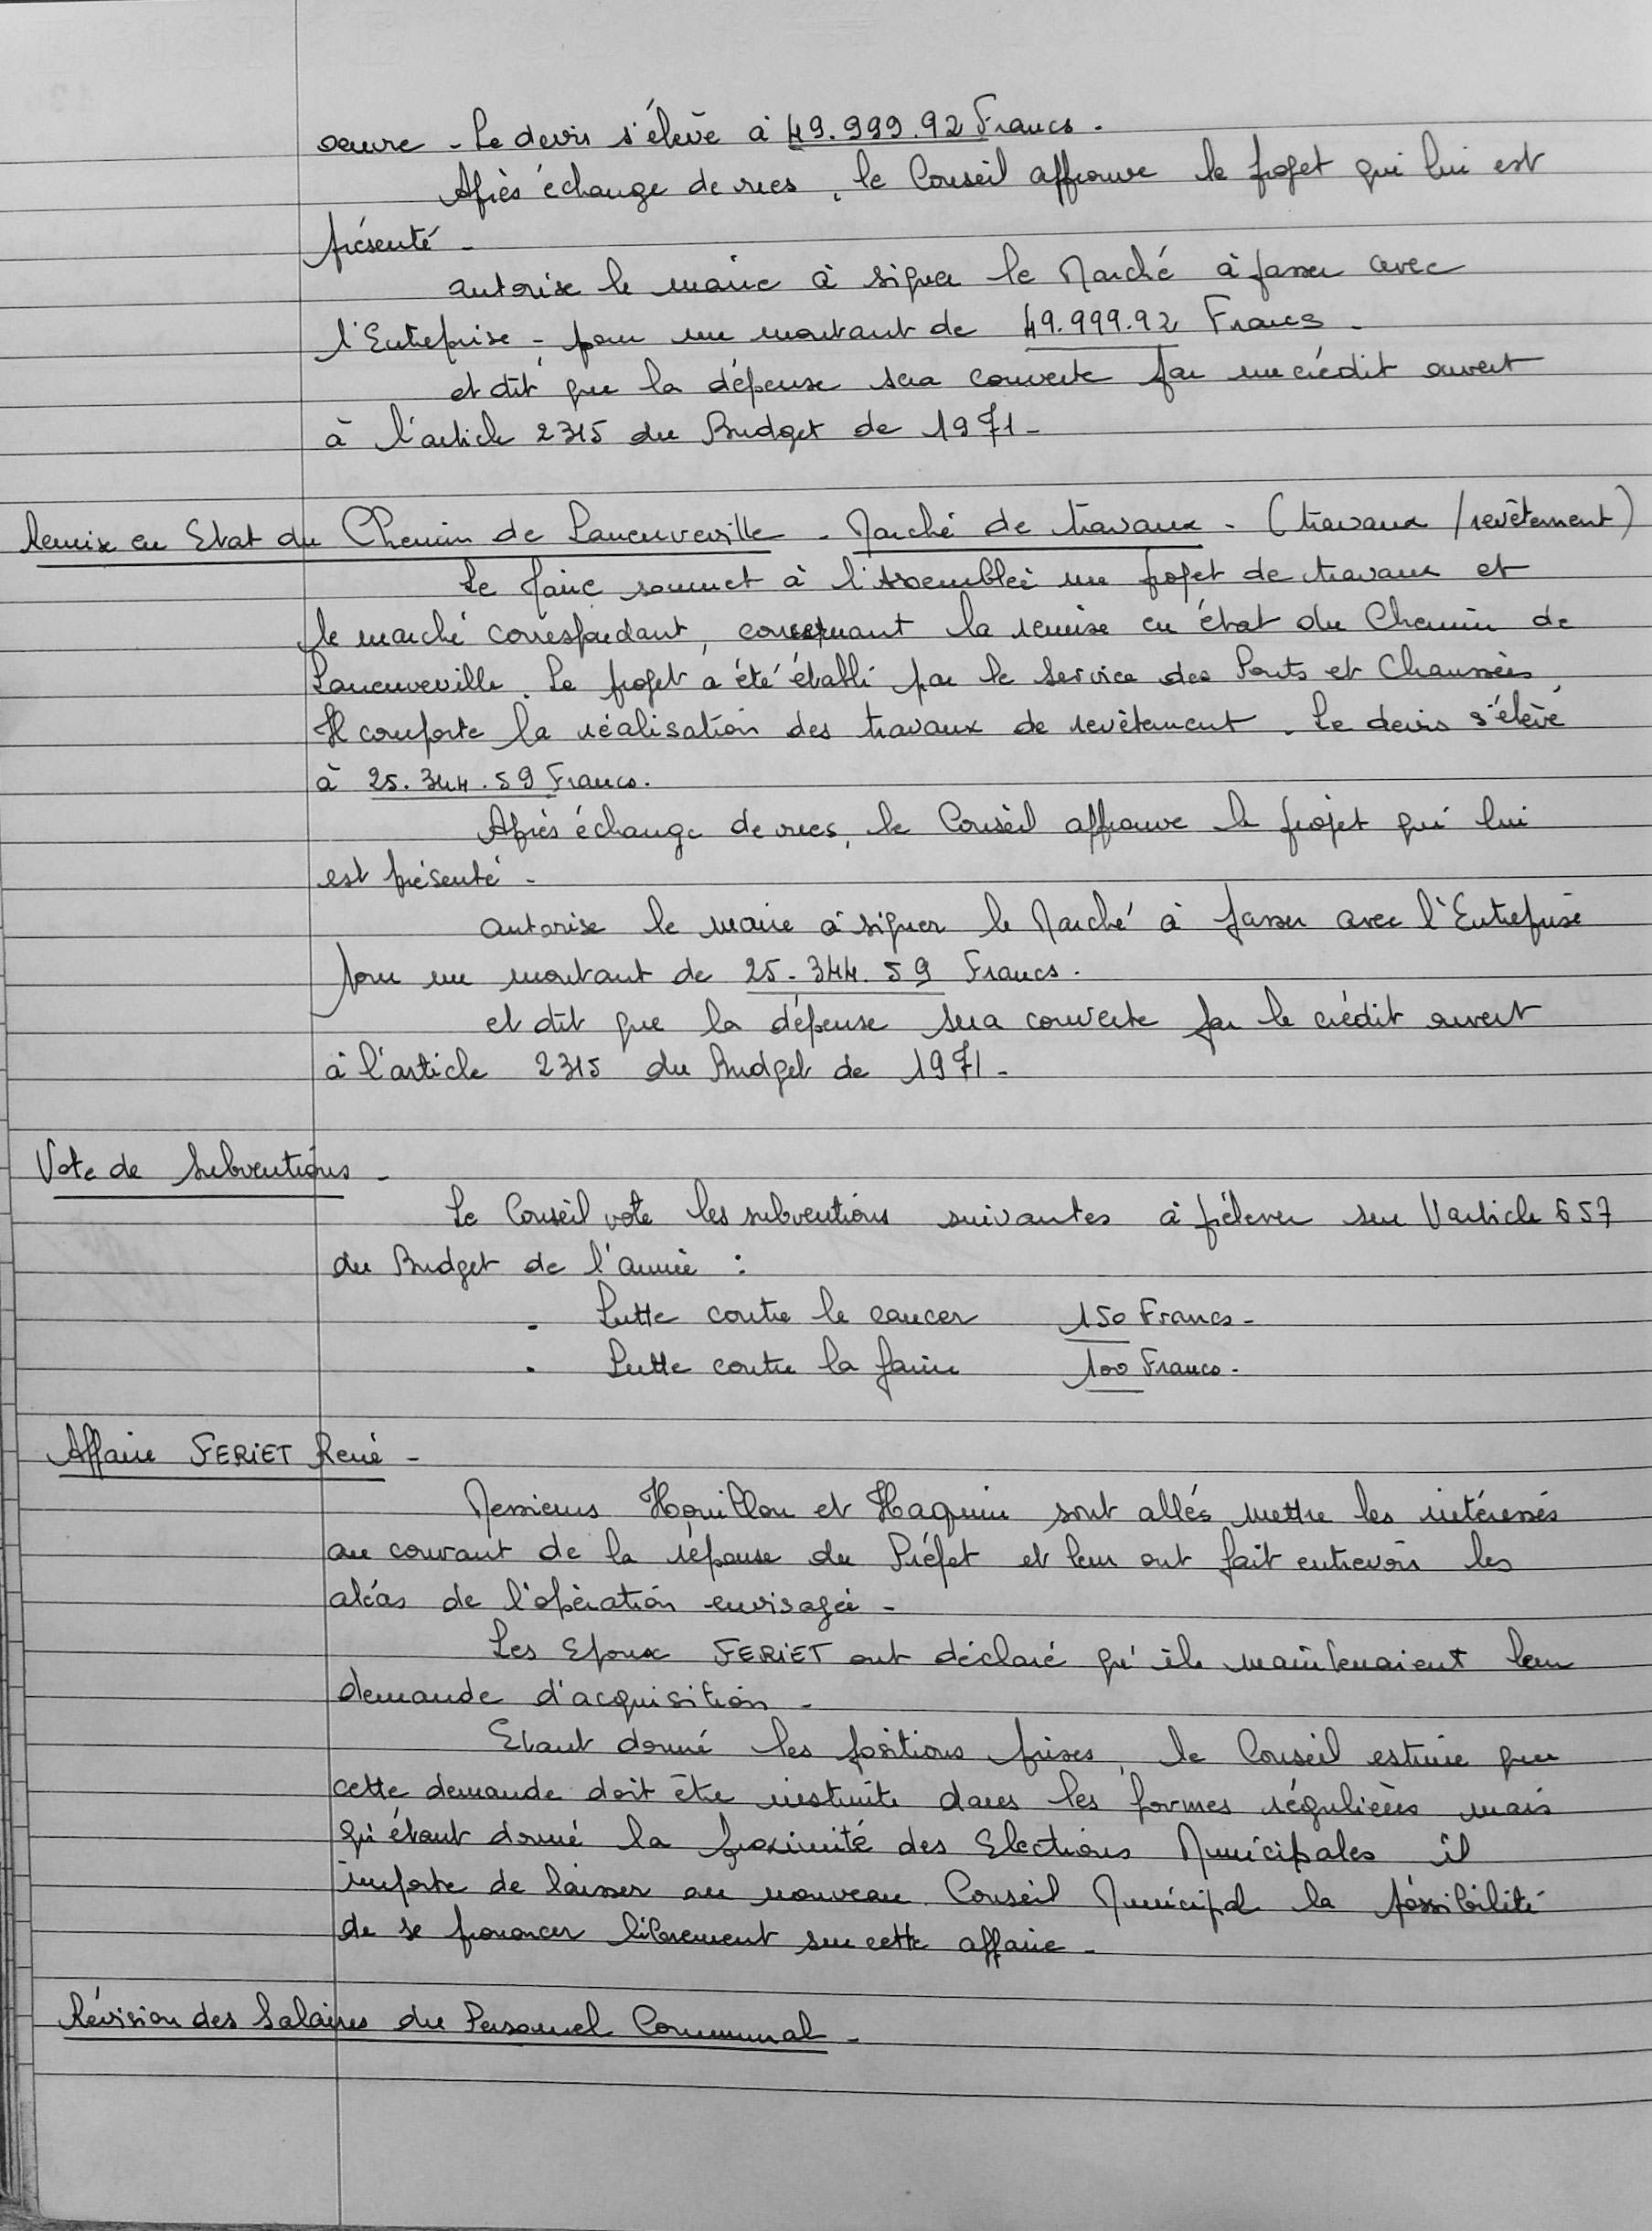 oeuvre - Le devis s'élève à 49.999.92 Francs.
Après échange de vues, le Conseil approuve le projet qui lui est
présenté -
autorise le maire à signer le Marché à passer avec
l'Entreprise - pour un montant de 49.999.92 Francs -
et dit que la dépense sera couverte par un crédit ouvert
à l'article 2315 du Budget de 1971 -
Remise en Etat du Chemin de Laneuveville - Marché de travaux - (travaux / revêtement)
Le Maire soumet à l'Assemblée un projet de travaux et
le marché correspondant, concernant la remise en état du Chemin de
Laneuveville. Le projet a été établi par le Service des Ponts et Chaussées,
Il comporte la réalisation des travaux de revêtement. Le devis s'élève
à 25.344.59 Francs.
Après échange de vues, le Conseil approuve le projet qui lui
est présenté -
autorise le maire à signer le Marché à passer avec l'Entreprise
pour un montant de 25.344.59 Francs.
et dit que la dépense sera couverte par le crédit ouvert
à l'article 2315 du Budget de 1971 -
Vote de Subventions -
Le Conseil vote les subventions suivantes à prélever sur l'article 657
du Budget de l'année :
- Lutte contre le cancer 150 Francs -
- Lutte contre la faim 100 Francs -
Affaire FERIET René -
Messieurs Houillon et Haquin sont allés mettre les intéressés
au courant de la réponse du Préfet et leur ont fait entrevoir les
aléas de l'opération envisagée -
Les Epoux FERIET ont déclaré qu'ils maintenaient leur
demande d'acquisition -
Etant donné les positions prises, le Conseil estime que
cette demande doit être instruite dans les formes régulières mais
qu'étant donné la proximité des Elections Municipales il
importe de laisser au nouveau Conseil Municipal la possibilité
de se prononcer librement sur cette affaire -
Révision des Salaires du Personnel Communal -